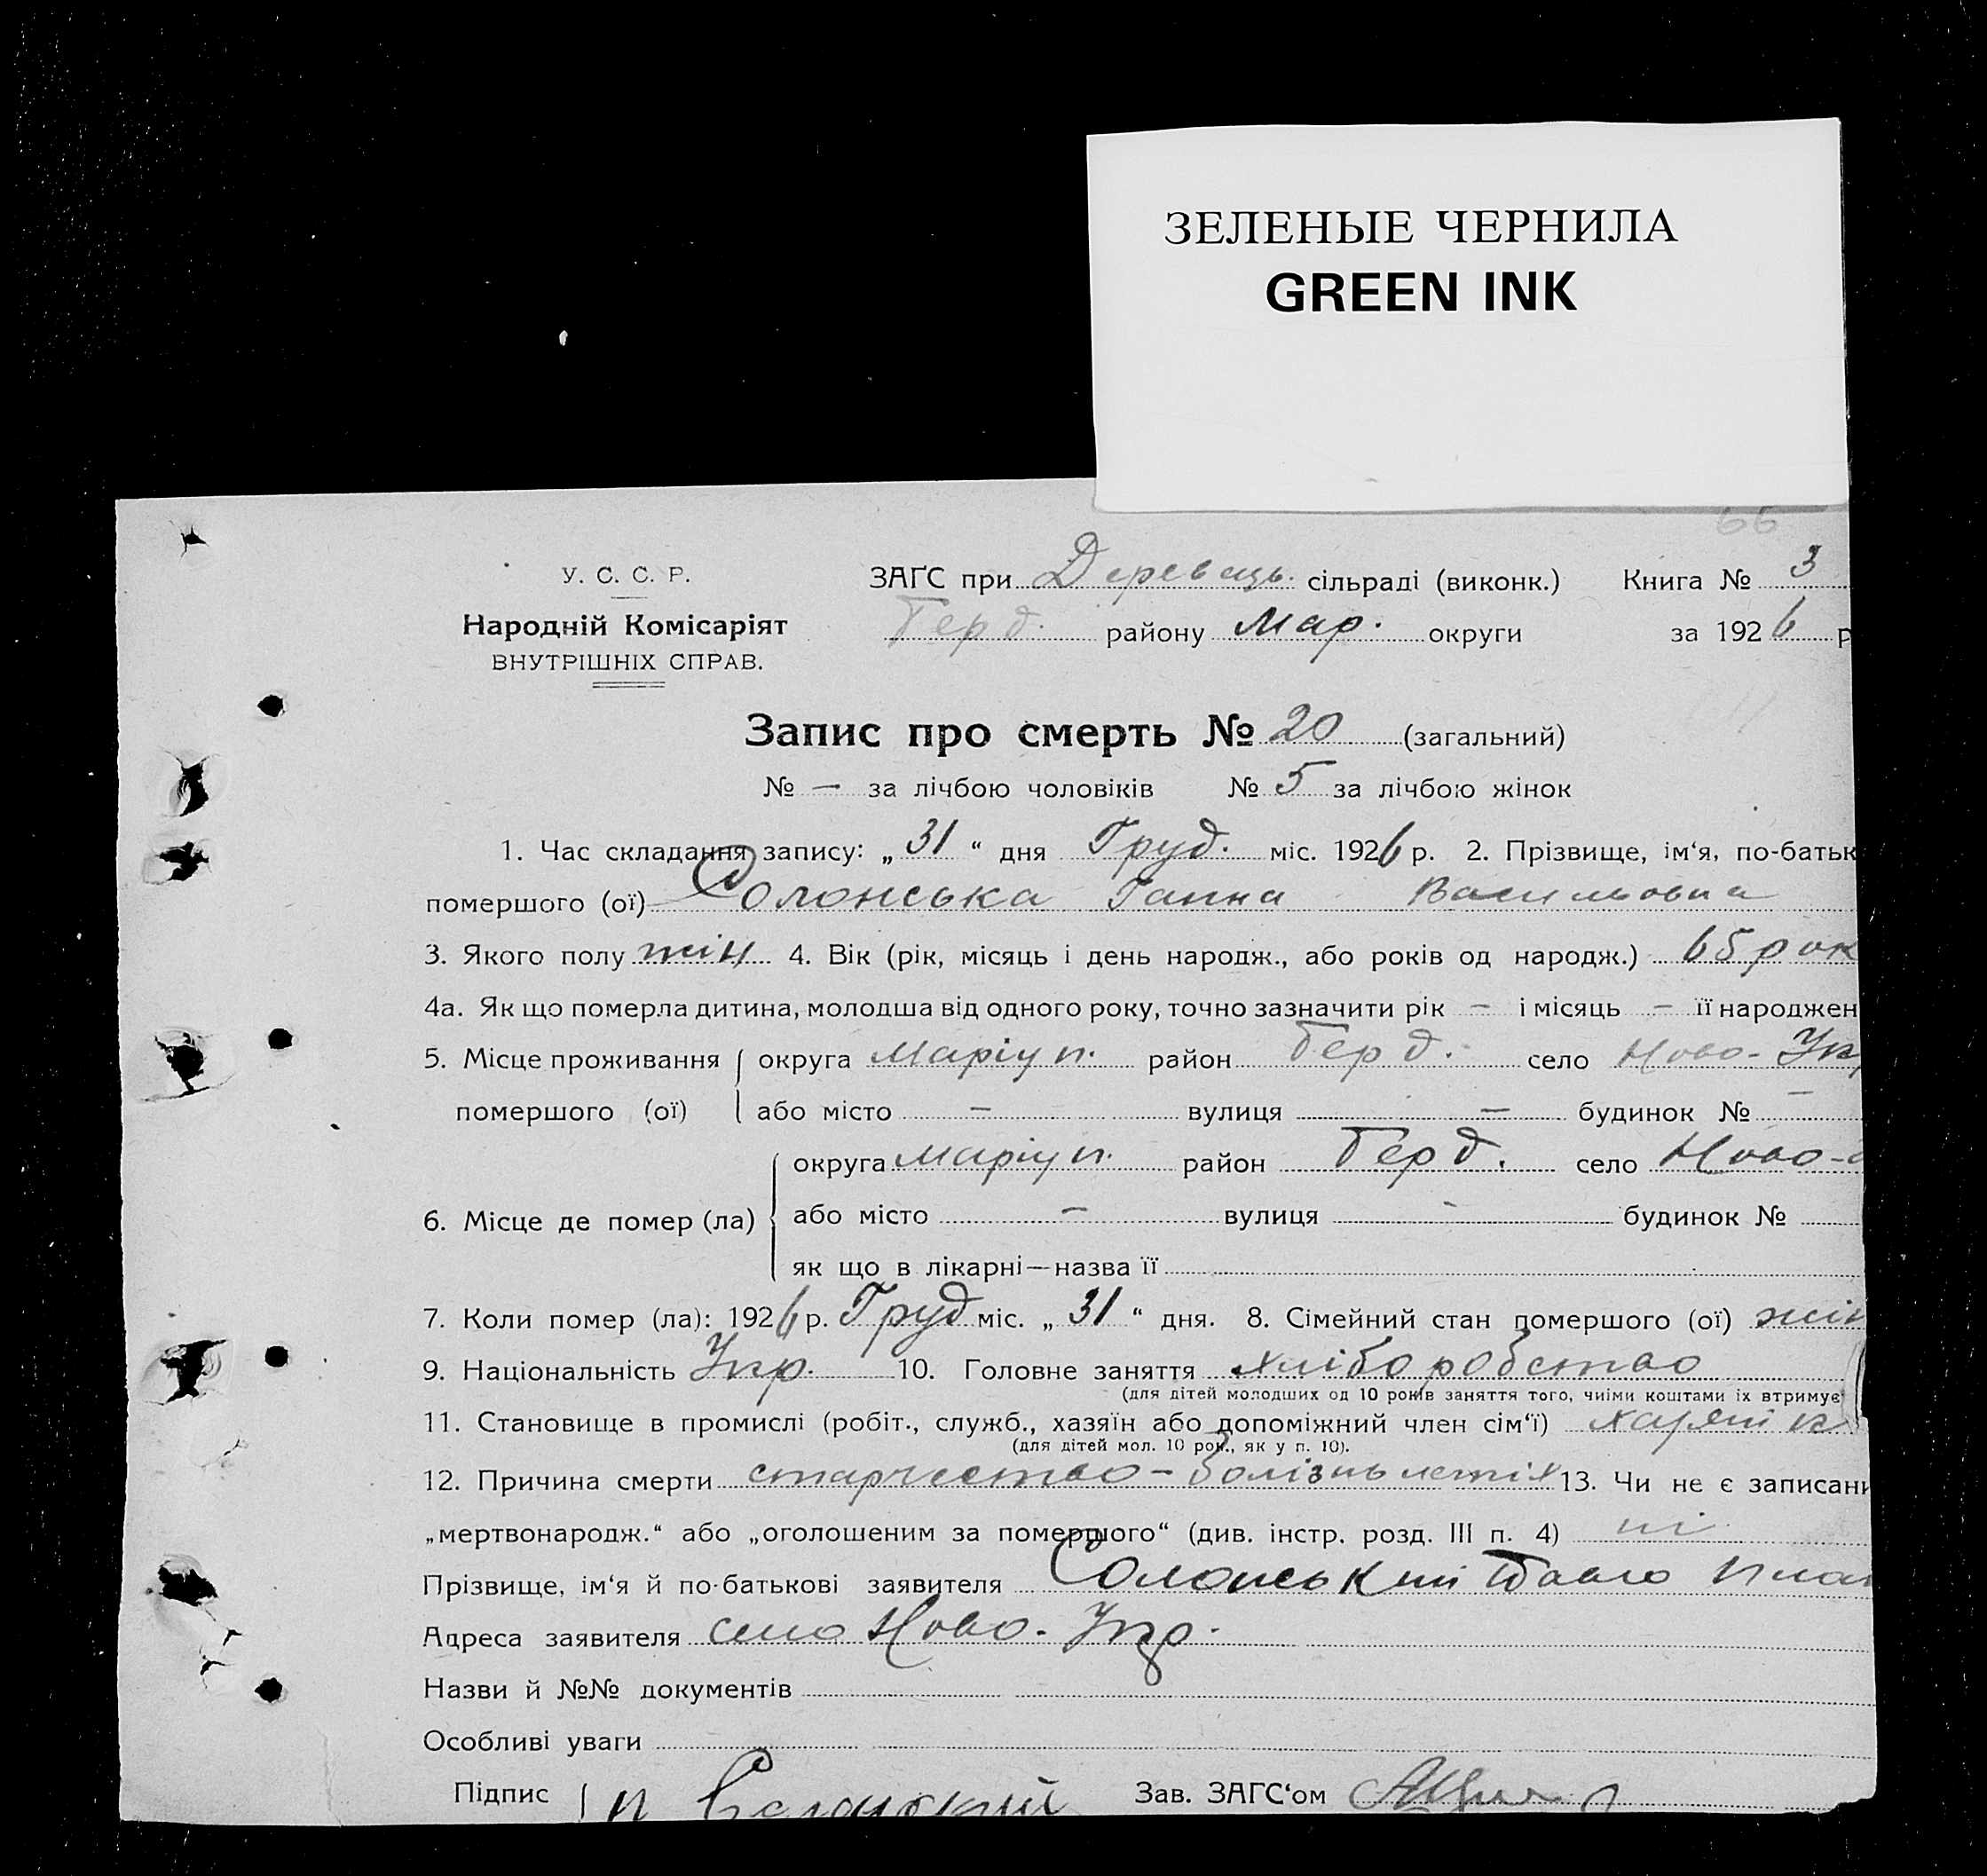 ЗЕЛЕНЫЕ ЧЕРНИЛА
GREEN INK
66
У. С. С. Р.
ЗАГС при Деревец. сільраді (виконк.) Книга № 3
Народній Комісаріят
Берд. району Мар. округи за 1926 р
ВНУТРІШНІХ СПРАВ.
Запис про смерть № 20 (загальний)
№ — за лічбою чоловіків № 5 за лічбою жінок
1. Час складання запису: „31“ дня Груд. міс. 1926 р. 2. Прізвище, ім‘я, по-батьк
помершого (ої) Солонська Ганна Васильовна
3. Якого полу жін 4. Вік (рік, місяць і день народж., або років од народж.) 65 рок
4а. Як що померла дитина, молодша від одного року, точно зазначити рік — і місяць — її народжен
5. Місце проживання округа Маріуп. район Берд. село Ново-Ук
помершого (ої) або місто — вулиця — будинок № —
округа Маріуп. район Берд. село Ново-
6. Місце де помер (ла) або місто — вулиця - будинок №
як що в лікарні—назва її
7. Коли помер (ла): 1926 р. Груд міс. „31“ дня. 8. Сімейний стан помершого (ої) жін
9. Національність Укр. 10. Головне заняття хлібо робство
(для дітей молодших од 10 років заняття того, чиїми коштами їх втримує
11. Становище в промислі (робіт., служб., хазяїн або допоміжний член сім‘ї)
(для дітей мол. 10 рок., як у п. 10).
12. Причина смерти старчество - болізнь 13. Чи не є записани
„мертвонародж.“ або „оголошеним за помершого“ (див. інстр. розд. III п. 4) ні
Прізвище, ім‘я й по-батькові заявителя Солонський Павло
Адреса заявителя село Ново-Укр.
Назви й №№ документів
Особливі уваги
Підпис П Солонский Зав. ЗАГС‘ом